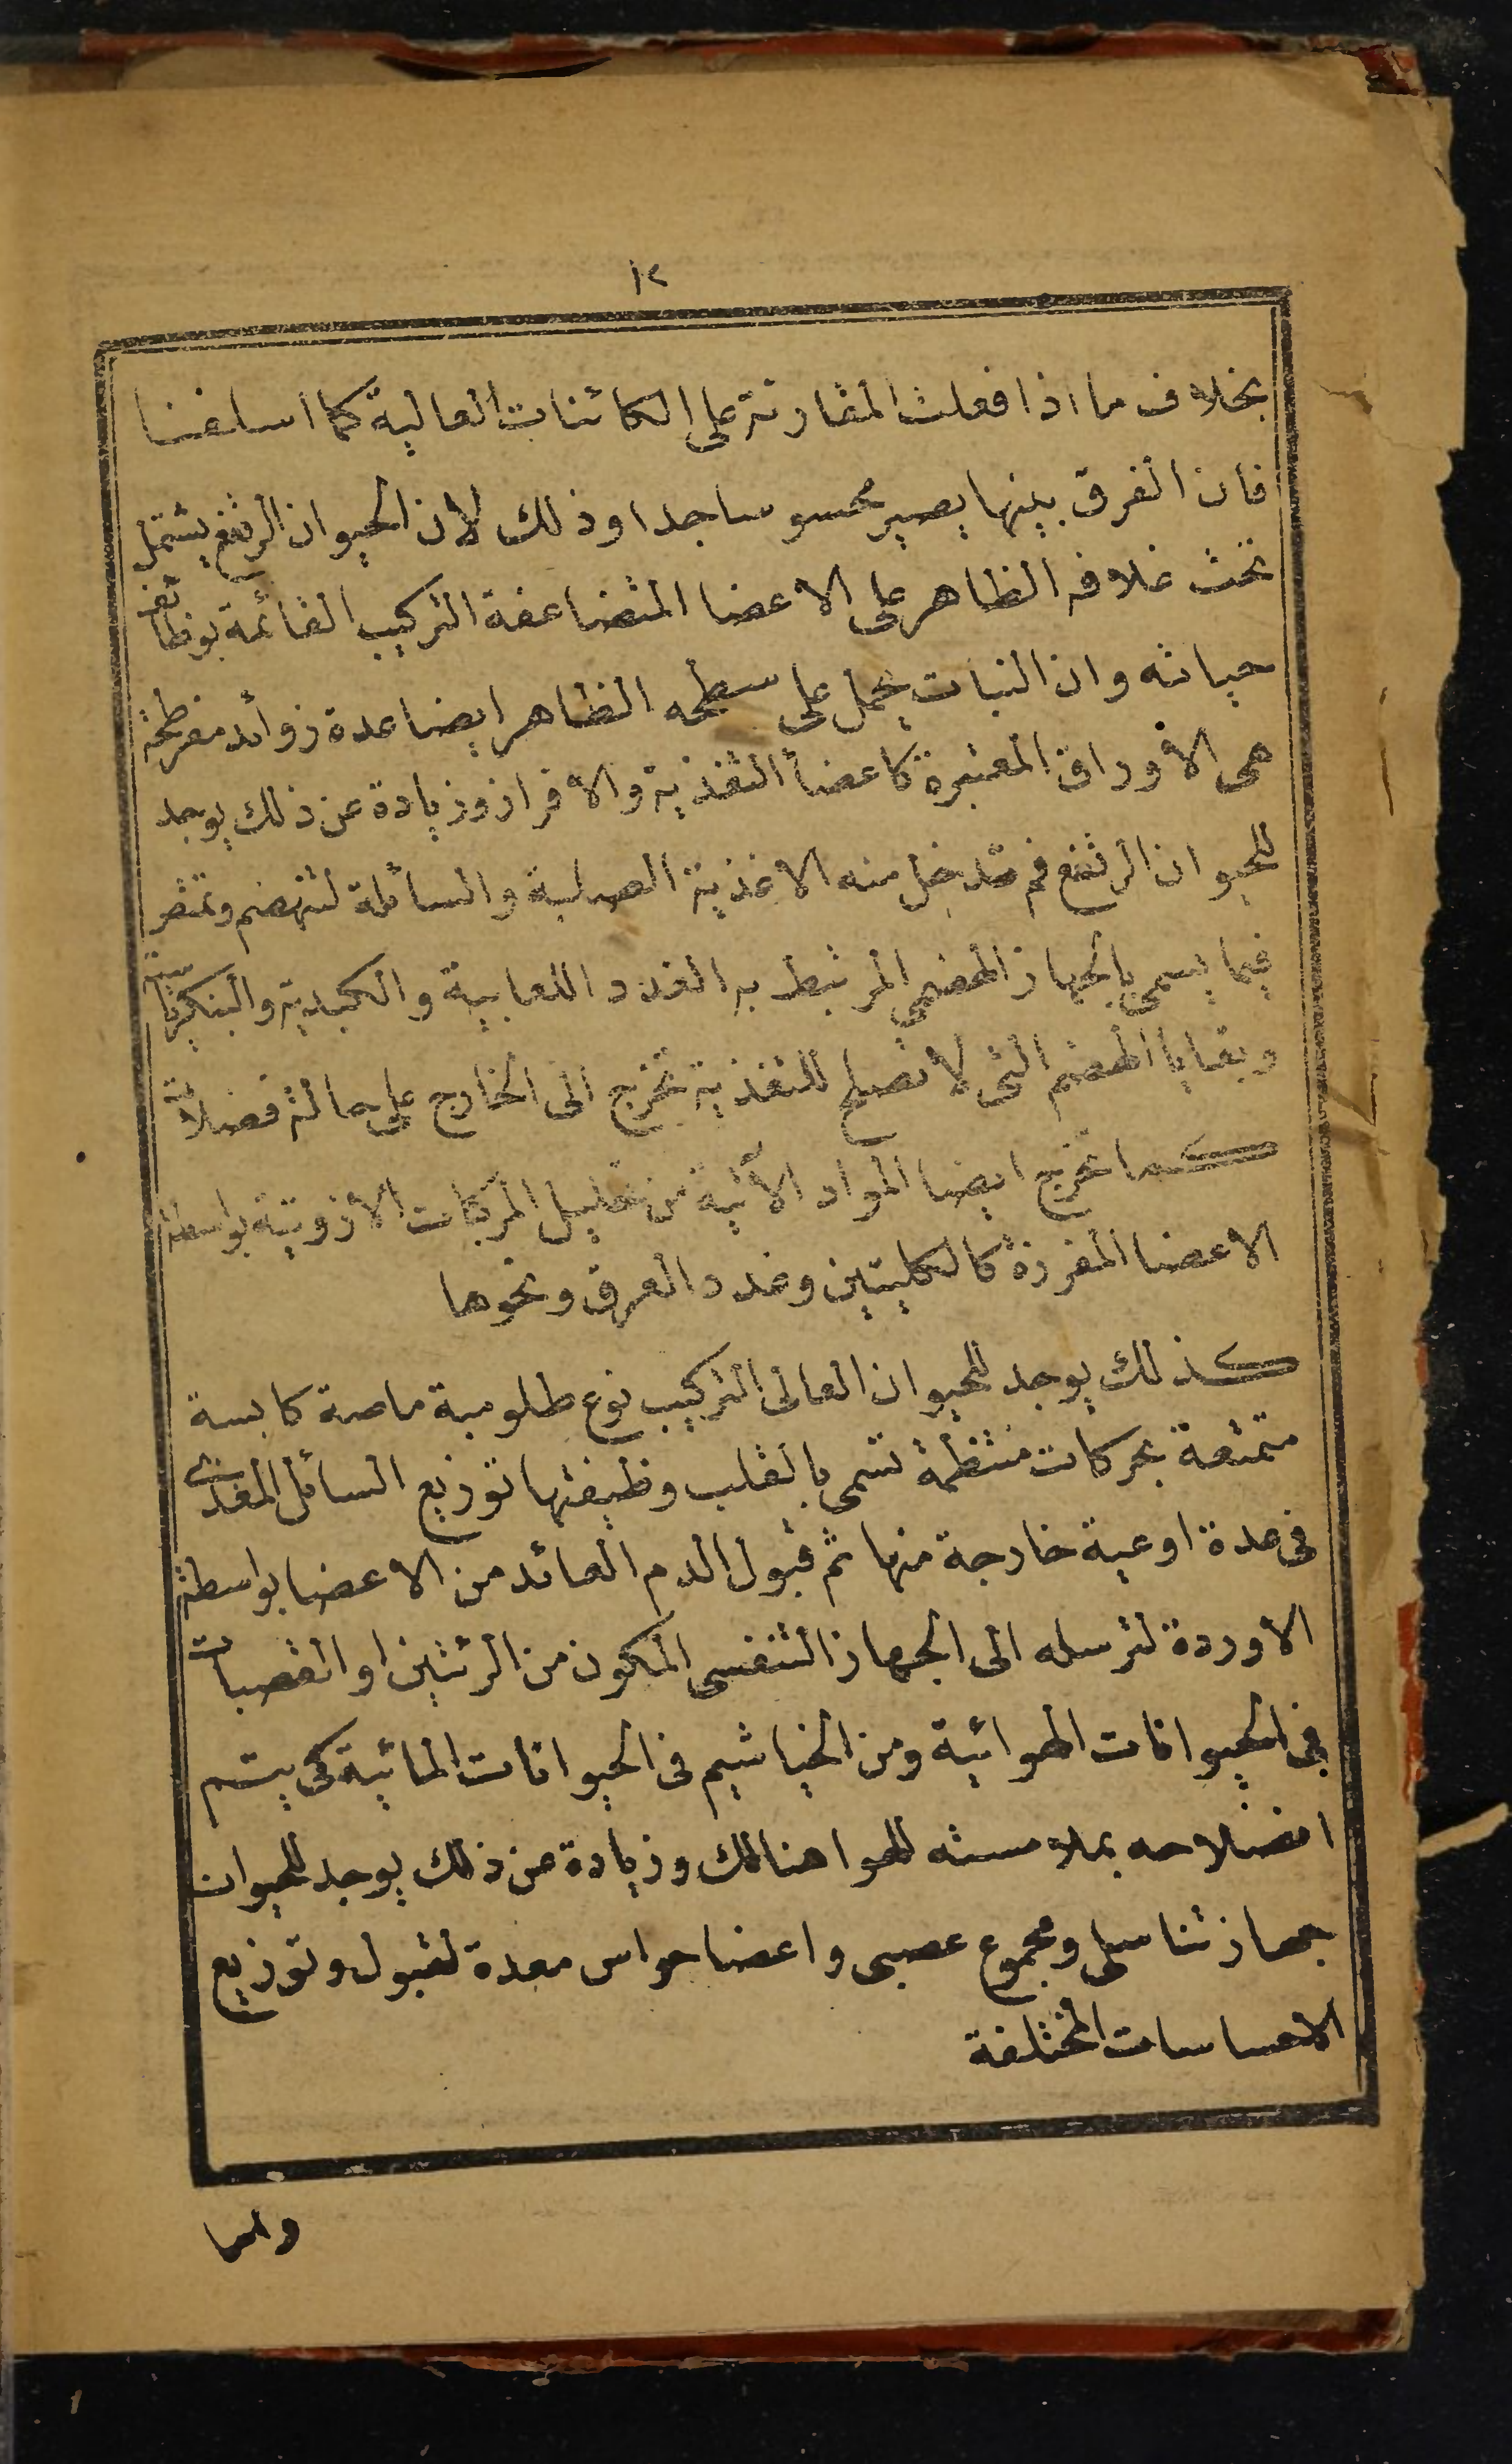 ١٢
بخلاف ما اذا فعلت المقارنة على الكائنات العالية كما اسلفنا
فان الفرق بينها يصير محسوسا جدا وذلك لان الحيوان المرتفع يشتمل
تحت غلافه الظاهر على الاعضا المتضاعفة التركيب القائمة بوظائف
حياته وان النبات يحمل على سطحه الظاهر ايضا عدة زوائد مفرطحة
هى الاوراق المعتبرة كاعضأ التغذية والافراز وزيادة عن ذلك يوجد
للحيوان المرتفع فم تدخل منه الاغذية الصلبة والسائلة لتنهضم وتمتص
فيما يسمى بالجهاز الهضمي المرتبط به الغدد اللعابية والكبدية والبنكرياسية
وبقايا الهضم التى لا تصلح للتغذية تخرج الى الخارج على حالة فضلات
كما تخرج ايضا المواد الآتية من تحليل المركبات الازوتية بواسطة
الاعضا المفرزة كالكليتين وغدد العرق ونحوها
كذلك يوجد للحيوان العالى التركيب نوع طلومبة ماصة كابسة
متمتعة بحركات منتظمة تسمى بالقلب وظيفتها توزيع السائل المغذى
فى عدة اوعية خارجة منها ثم قبول الدم العائد من الاعضا بواسطة
الاوردة لترسله الى الجهاز التنفسى المكون من الرئتين او القصبات
فى الحيوانات الهوائية ومن الخياشيم فى الحيوانات المائية كى يتم
انصلاحه بملامسته للهوا هنالك وزيادة عن ذلك يوجد للحيوان
جهاز تناسلى ومجموع عصبى واعضا حواس معدة لقبول وتوزيع
الاحساسات المختلفة
واما